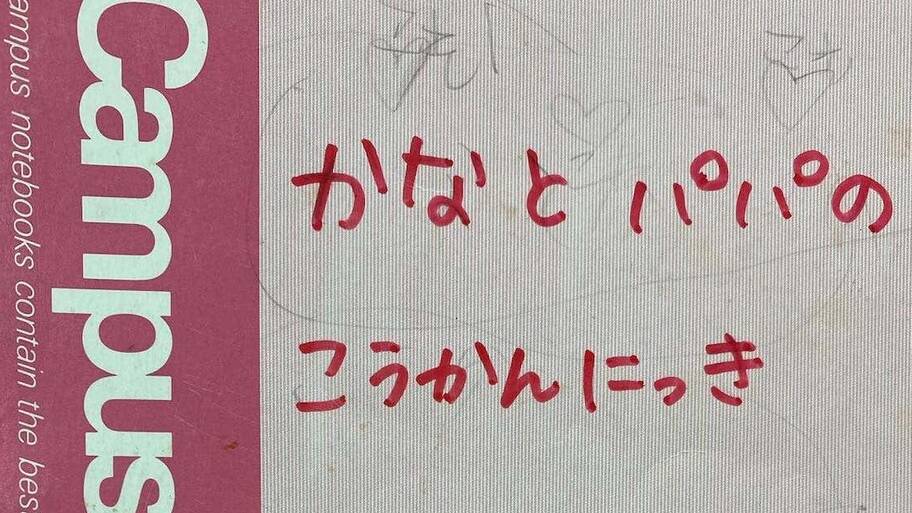 Campus
ampus notebooks contain the bes
かなと パパの
こうかんにっき